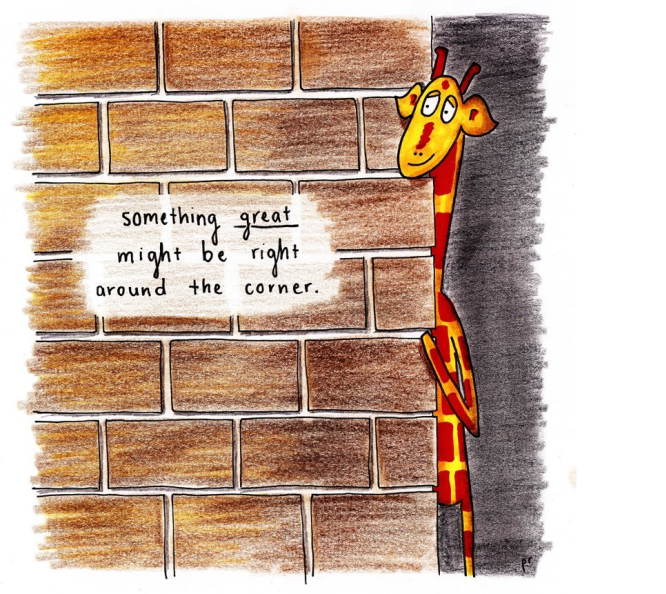 something great
might be right
around the corner.
pr